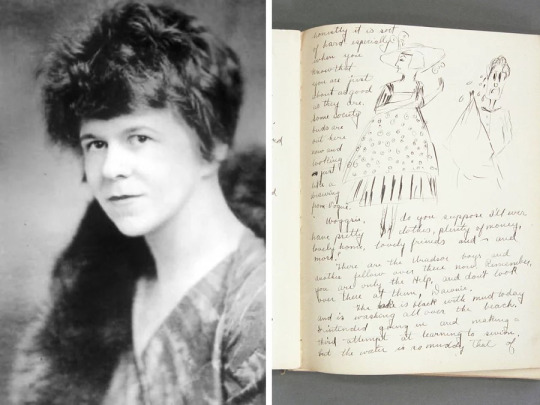 honestly it is sort
of hard especially
when you
know that
you are just
about as good
as they are.
Some society
buds are
out here
now and
looking
just
like a
drawing
from Vogue.
Do you suppose I'll ever
have pretty clothes, plenty of money,
lovely home, lovely friends and – and
more?
There are the Windsor boys and
another fellow over there now. Remember,
you are only the Help, and don't look
over there at them, Dawnie.
The lake is black with mud today
and is washing all over the beach.
I intended going in and making a
third attempt at learning to swim.
but the water is so muddy that I